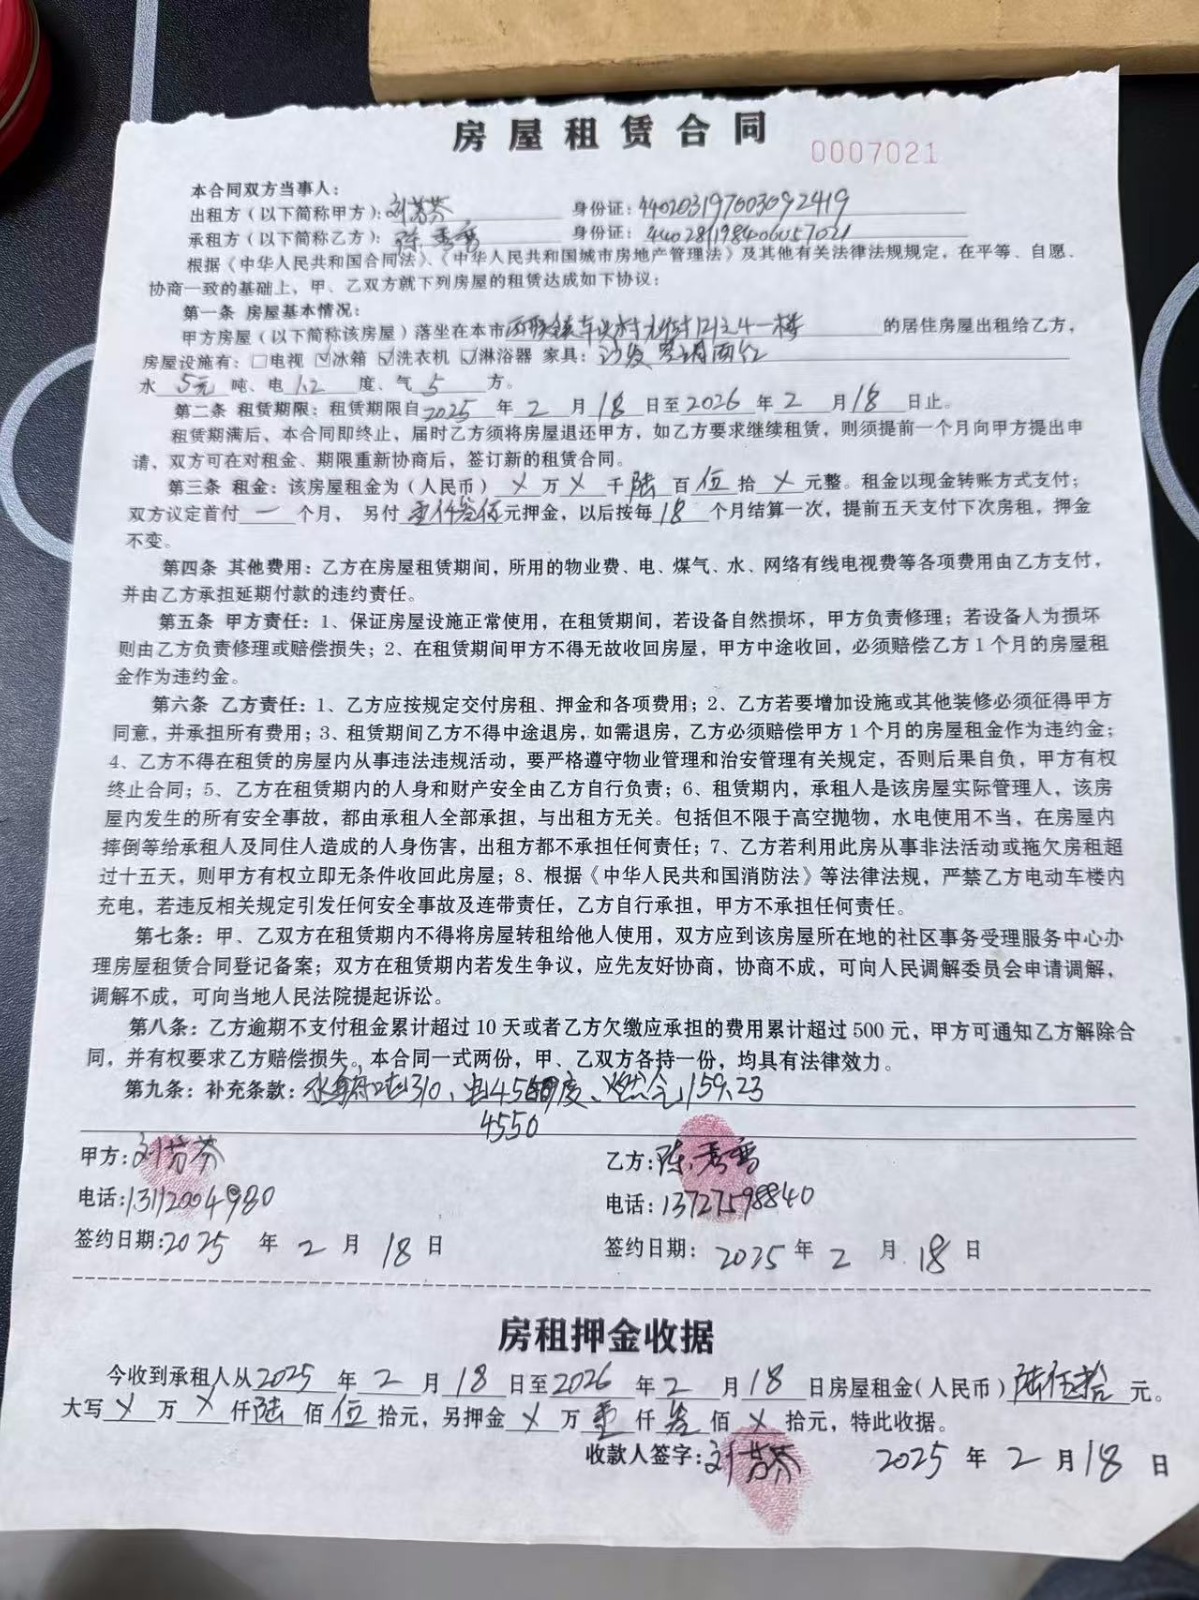 房屋租赁合同
0007021
本合同双方当事人：
出租方（以下简称甲方）：刘芳芬 身份证：440203197003092419
承租方（以下简称乙方）：陈秀雪 身份证：440281198406057021
根据《中华人民共和国合同法》、《中华人民共和国城市房地产管理法》及其他有关法律法规规定，在平等、自愿、
协商一致的基础上，甲、乙双方就下列房屋的租赁达成如下协议：
第一条 房屋基本情况：
甲方房屋（以下简称该房屋）落坐在本市 一楼 的居住房屋出租给乙方，
房屋设施有：□电视 ☑冰箱 ☑洗衣机 ☑淋浴器 家具：沙发
水 5元 吨、电 1.2 度、气 5 方。
第二条 租赁期限：租赁期限自2025 年 2 月 18 日至2026 年 2 月 18 日止。
租赁期满后、本合同即终止，届时乙方须将房屋退还甲方，如乙方要求继续租赁，则须提前一个月向甲方提出申
请，双方可在对租金、期限重新协商后，签订新的租赁合同。
第三条 租金：该房屋租金为（人民币） ㄨ 万 ㄨ 千 陆 百 伍 拾 ㄨ 元整。租金以现金转账方式支付；
双方议定首付 一 个月， 另付 元押金，以后按每 18 个月结算一次，提前五天支付下次房租，押金
不变。
第四条 其他费用：乙方在房屋租赁期间，所用的物业费、电、煤气、水、网络有线电视费等各项费用由乙方支付，
并由乙方承担延期付款的违约责任。
第五条 甲方责任：1、保证房屋设施正常使用，在租赁期间，若设备自然损坏，甲方负责修理；若设备人为损坏
则由乙方负责修理或赔偿损失；2、在租赁期间甲方不得无故收回房屋，甲方中途收回，必须赔偿乙方 1 个月的房屋租
金作为违约金。
第六条 乙方责任：1、乙方应按规定交付房租、押金和各项费用；2、乙方若要增加设施或其他装修必须征得甲方
同意，并承担所有费用；3、租赁期间乙方不得中途退房，如需退房，乙方必须赔偿甲方 1 个月的房屋租金作为违约金；
4、乙方不得在租赁的房屋内从事违法违规活动，要严格遵守物业管理和治安管理有关规定，否则后果自负，甲方有权
终止合同；5、乙方在租赁期内的人身和财产安全由乙方自行负责；6、租赁期内，承租人是该房屋实际管理人，该房
屋内发生的所有安全事故，都由承租人全部承担，与出租方无关。包括但不限于高空抛物，水电使用不当，在房屋内
摔倒等给承租人及同住人造成的人身伤害，出租方都不承担任何责任；7、乙方若利用此房从事非法活动或拖欠房租超
过十五天，则甲方有权立即无条件收回此房屋；8、根据《中华人民共和国消防法》等法律法规，严禁乙方电动车楼内
充电，若违反相关规定引发任何安全事故及连带责任，乙方自行承担，甲方不承担任何责任。
第七条：甲、乙双方在租赁期内不得将房屋转租给他人使用，双方应到该房屋所在地的社区事务受理服务中心办
理房屋租赁合同登记备案；双方在租赁期内若发生争议，应先友好协商，协商不成，可向人民调解委员会申请调解，
调解不成，可向当地人民法院提起诉讼。
第八条：乙方逾期不支付租金累计超过 10 天或者乙方欠缴应承担的费用累计超过 500 元，甲方可通知乙方解除合
同，并有权要求乙方赔偿损失。本合同一式两份，甲、乙双方各持一份，均具有法律效力。
第九条：补充条款： 310、电 度、燃气159.23
4550
甲方：刘芳芬 乙方：陈秀雪
电话：13112004980 电话：13727598840
签约日期：2025 年 2 月 18 日 签约日期： 2025 年 2 月 18 日
房租押金收据
今收到承租人从2025 年 2 月 18 日至2026 年 2 月 18 日房屋租金（人民币）陆伍拾 元。
大写 ㄨ 万 ㄨ 仟陆 佰 伍 拾元，另押金 ㄨ 万 壹 仟 叁 佰 ㄨ 拾元，特此收据。
收款人签字：刘芳芬 2025 年 2 月 18 日